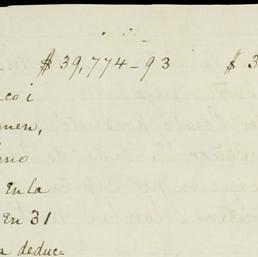 $ 39,774-93 $ 3
co i
men,
no
En la
en 31
a deduc=